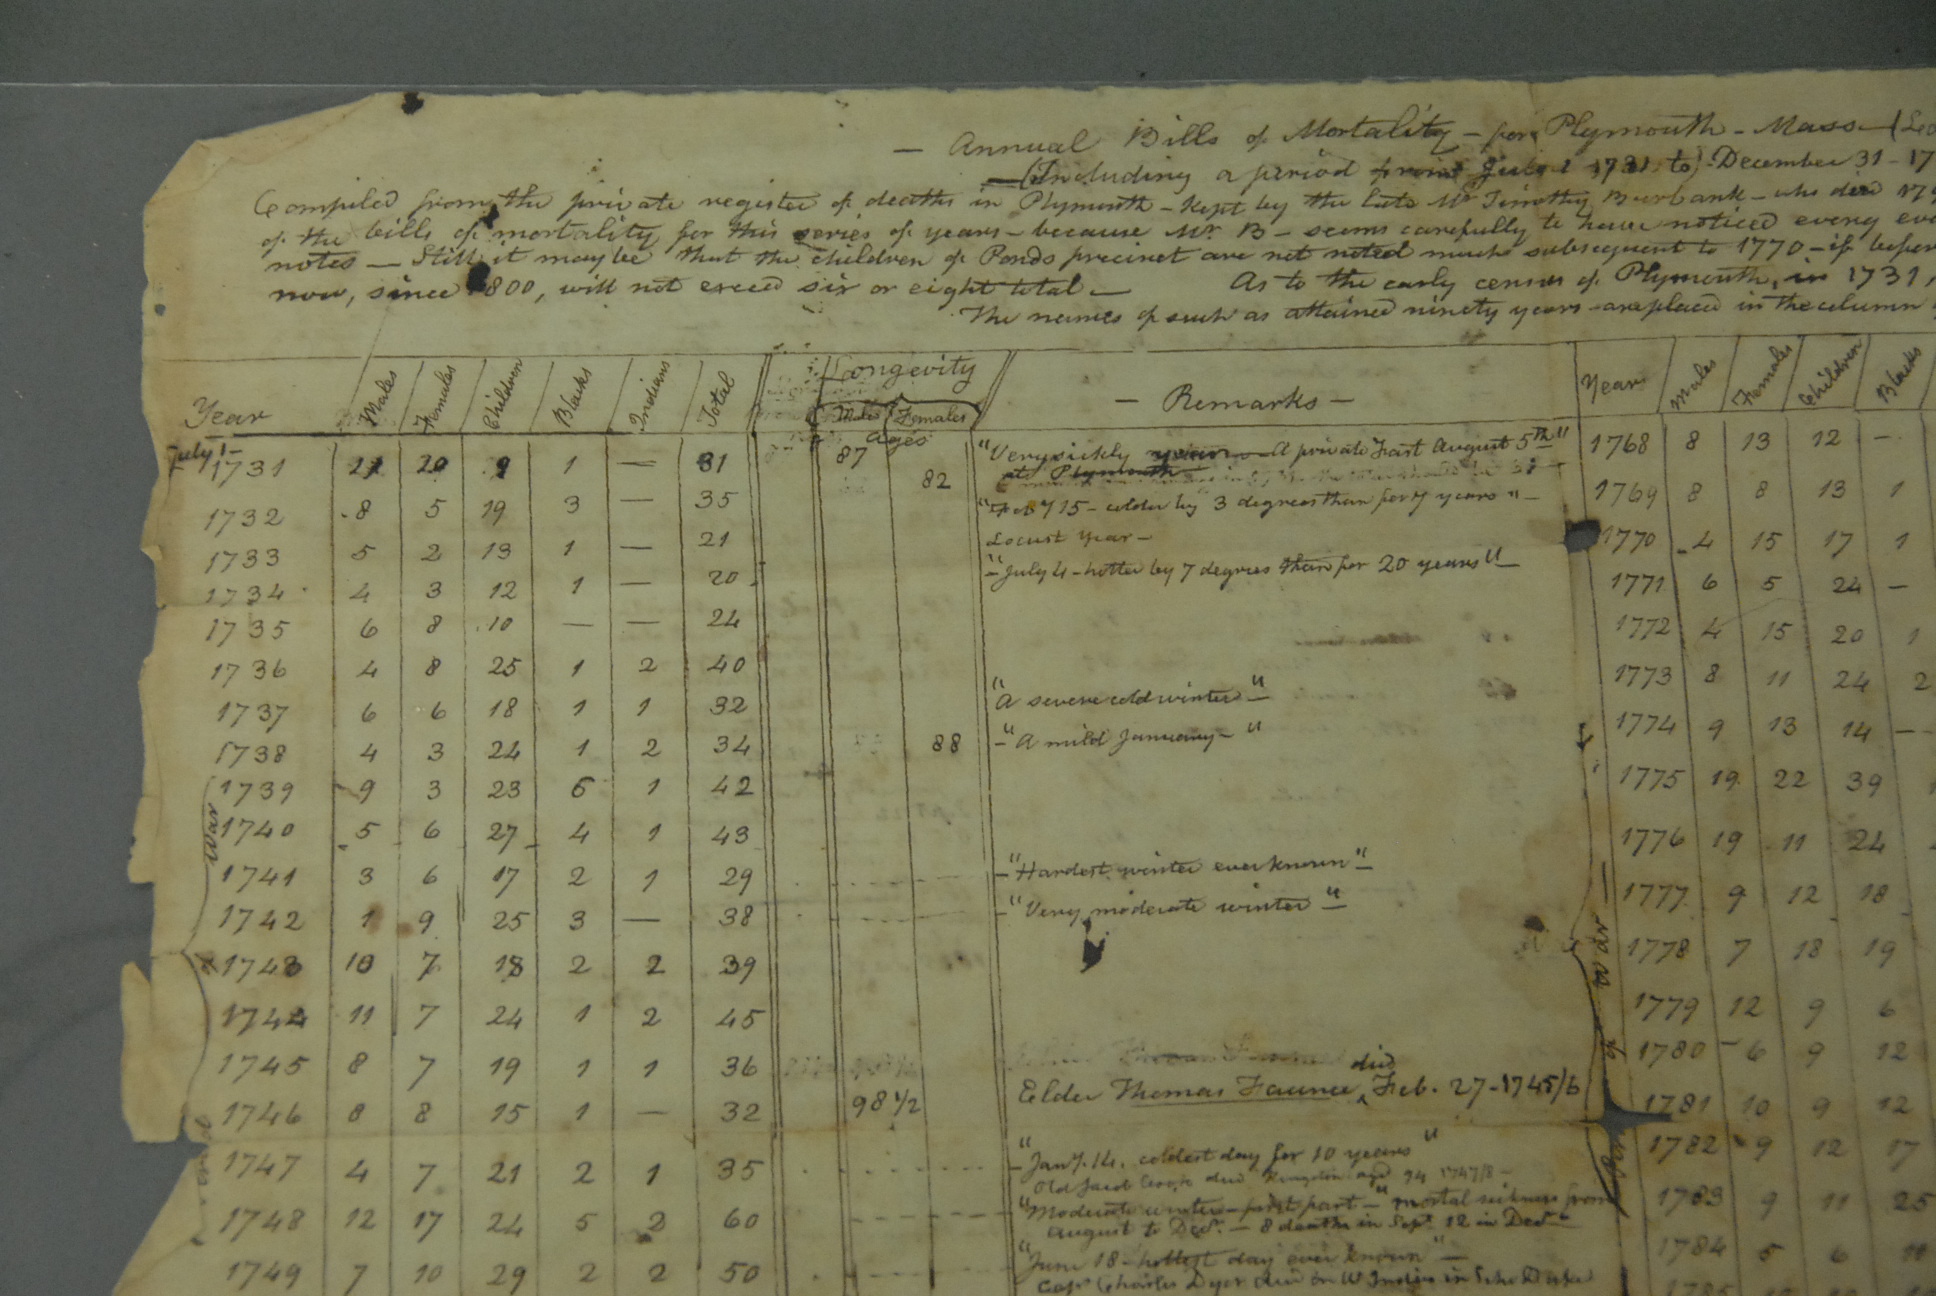 — Annual Bills of Mortality — for Plymouth — Mass —
(Including a period from July 1 1731 to December 31 - 17
Compiled from the private register of deaths in Plymouth — kept by the late Mr Timothy Burbank — who died 179
of the bills of mortality for this series of years — because Mr. B — seems carefully to have noticed every eve
notes — Still it may be that the children of Ponds precinct are not noted much subsequent to 1770 — if befor
now, since 1800, will not exceed six or eight total — As to the early census of Plymouth, in 1731,
The names of such as attained ninety years — are placed in the column
Year Males Females Children Blacks Indians Total Longevity Males Females Ages — Remarks — Year Males Females Children Blacks
July 1 —
1731 21 20 9 1 — 31 87 82 "Very sickly year — A private Fast August 5th" 1768 8 13 12 —
at Plymouth
1732 8 5 19 3 — 35 15 — colder by 3 degrees than for 7 years" — 1769 8 8 13 1
1733 5 2 13 1 — 21 Locust year — 1770 4 15 17 1
1734 4 3 12 1 — 20 "July 4 — hotter by 7 degrees than for 20 years" — 1771 6 5 24 —
1735 6 8 10 — — 24 1772 4 15 20 1
1736 4 8 25 1 2 40 1773 8 11 24 2
1737 6 6 18 1 1 32 "A severe cold winter" — 1774 9 13 14 —
1738 4 3 24 1 2 34 88 — "A mild January — " 1775 19 22 39
1739 9 3 23 6 1 42 1776 19 11 24
War 1740 5 6 27 4 1 43 1777 9 12 18
1741 3 6 17 2 1 29 — "Hardest winter ever known" — 1778 7 18 19
1742 1 9 25 3 — 38 — "Very moderate winter" — 1779 12 9 6
1743 10 7 18 2 2 39 1780 6 9 12
1744 11 7 24 1 2 45 1781 10 9 12
1745 8 7 19 1 1 36 1782 9 12 17
1746 8 8 15 1 — 32 98 1/2 Elder Thomas Faunce died Feb. 27 - 1745/6 1783 9 11 25
1747 4 7 21 2 1 35 — "Jany. 14. coldest day for 10 years" 1784 5 6 11
Old Jacob Cook died Kingston aged 94 1747/8 —
1748 12 17 24 5 2 60 "Moderate winter — first part —" mortal sickness from 1785
August to Decr. — 8 deaths in Sept 12 in Decr —
1749 7 10 29 2 2 50 "June 18 — hottest day ever known" —
Capt Charles Dyer died in W Indies in
War